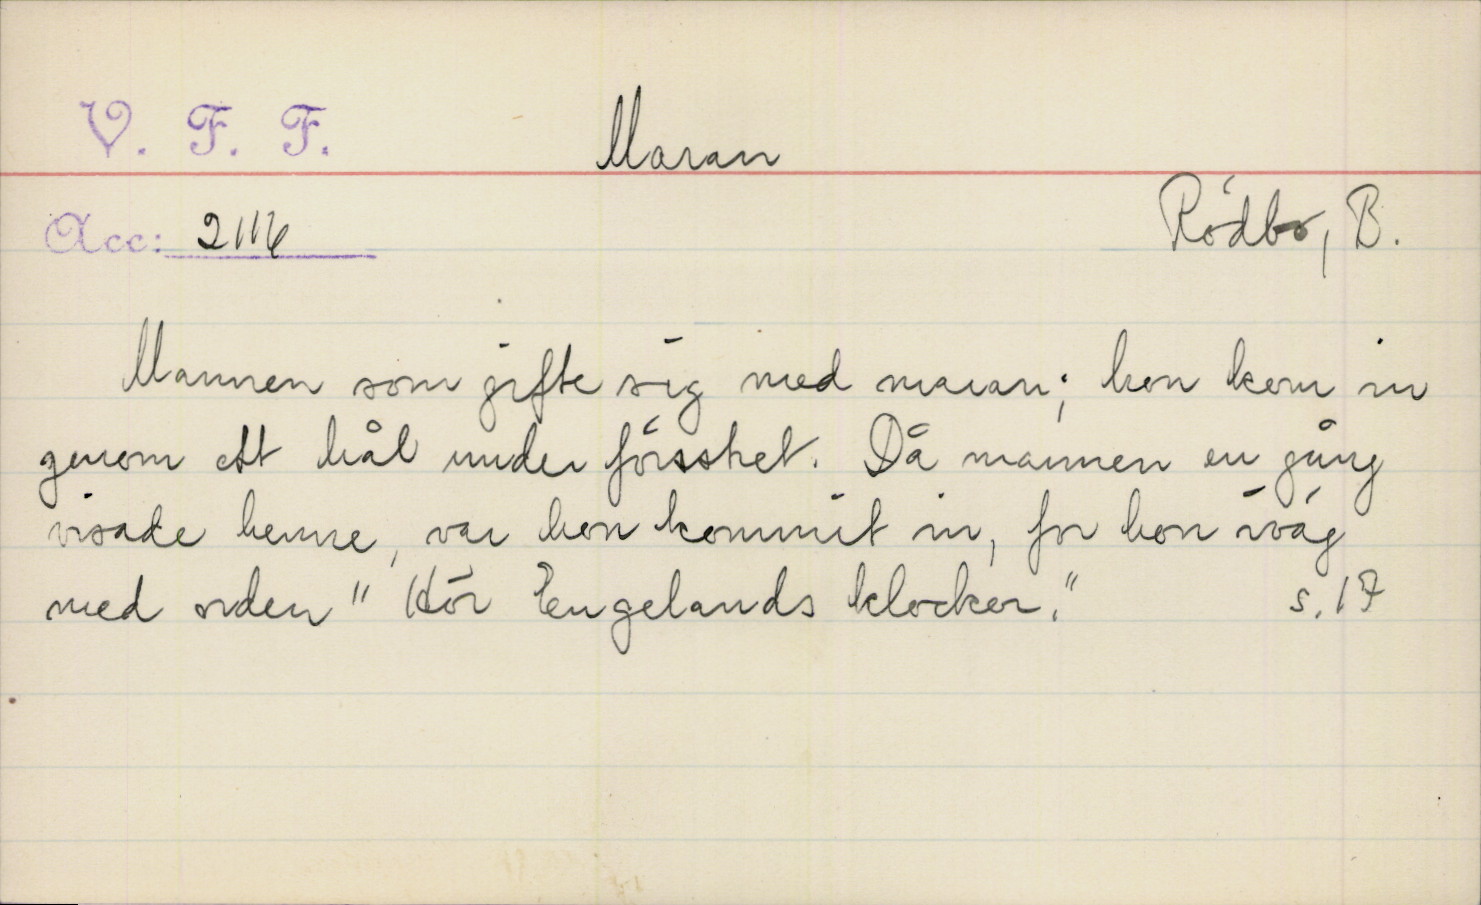 V. F. F.
Maran
Acc: 2116
Rödbo, B.
Mannen som gifte sig med maran; hon kom in
genom ett hål under fönstret. Då mannen en gång
visade henne, var hon kommit in, for hon iväg
med orden "Hör Engelands klockor."
s. 17